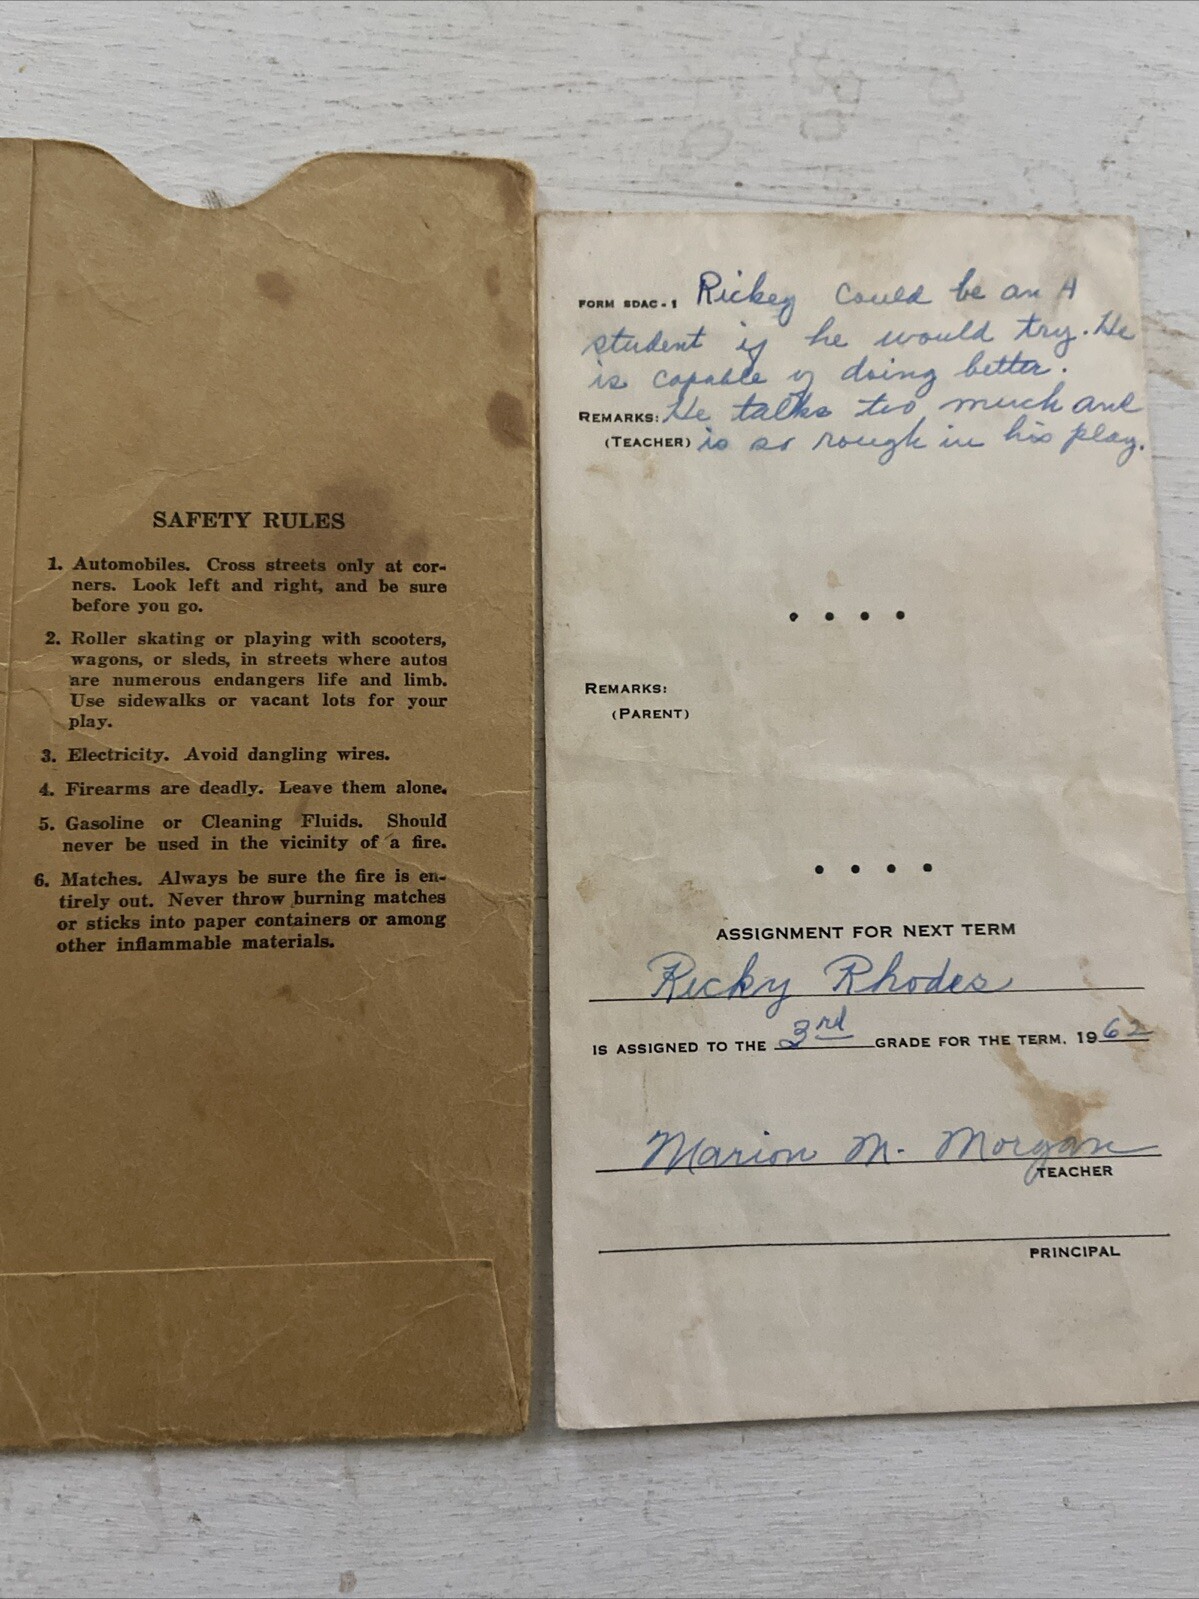 SAFETY RULES
1. Automobiles. Cross streets only at cor-
ners. Look left and right, and be sure
before you go.
2. Roller skating or playing with scooters,
wagons, or sleds, in streets where autos
are numerous endangers life and limb.
Use sidewalks or vacant lots for your
play.
3. Electricity. Avoid dangling wires.
4. Firearms are deadly. Leave them alone.
5. Gasoline or Cleaning Fluids. Should
never be used in the vicinity of a fire.
6. Matches. Always be sure the fire is en-
tirely out. Never throw burning matches
or sticks into paper containers or among
other inflammable materials.
FORM SDAC-1 Rickey could be an A
student if he would try. He
is capable of doing better.
REMARKS: He talks too much and
(TEACHER) is so rough in his play.
REMARKS:
(PARENT)
ASSIGNMENT FOR NEXT TERM
Ricky Rhodes
IS ASSIGNED TO THE 3rd GRADE FOR THE TERM, 1962
Marion M. Morgan
TEACHER
PRINCIPAL